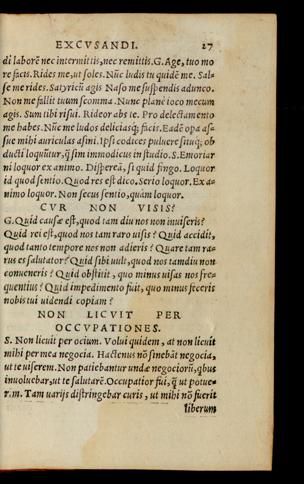 EXCVSANDI. 27
di laborē nec intermittis, nec remittis. G. Age, tuo mo
re facis. Rides me, ut soles. Nūc ludis tu quidē me. Sal-
se me rides. Satyricū agis Naso me suspendis adunco.
Non me fallit tuum scomma. Nunc planè ioco mecum
agis. Sum tibi risui. Rideor abs te. Pro delectamento
me habes. Nūc me ludos deliciasq; facis. Eadē opa as-
sue mihi auriculas asini. Ipsi codices puluere situq; ob
ducti loquūtur, q̄ sim immodicus in studio. S. Emoriar
ni loquor ex animo. Dispereā, si quid fingo. Loquor
id quod sentio. Quod res est dico. Serio loquor. Ex a-
nimo loquor. Non secus sentio, quàm loquor.
CVR NON VISIS?
G. Quid causæ est, quod tam diu nos non inuiseris?
Quid rei est, quod nos tam raro uisis? Quid accidit,
quod tanto tempore nos non adieris? Quare tam ra-
rus es salutator? Quid sibi uult, quod nos tamdiu non
conueneris? Quid obstitit, quo minus uisas nos fre-
quentius? Quid impedimento fuit, quo minus feceris
nobis tui uidendi copiam?
NON LICVIT PER
OCCVPATIONES.
S. Non licuit per ocium. Volui quidem, at non licuit
mihi per mea negocia. Hactenus nō sinebāt negocia,
ut te uiserem. Non patiebantur undæ negociorū, qbus
inuoluebar, ut te salutarē. Occupatior fui, q̄ ut potue-
r.m. Tam uarijs distringebar curis, ut mihi nō fuerit
liberum